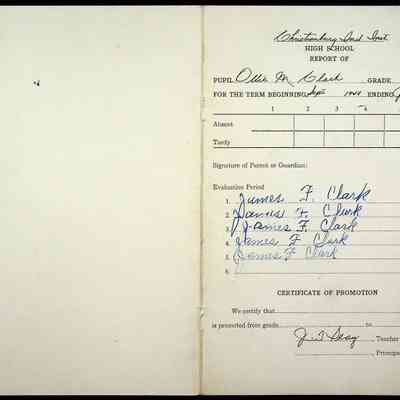 Christiansburg Ind Inst
HIGH SCHOOL
REPORT OF
PUPIL Ollie M Clark GRADE
FOR THE TERM BEGINNING Sept ENDING
1 2 3 4
Absent
Tardy
Signature of Parent or Guardian:
Evaluation Period
1. James F. Clark
2. James F. Clark
3. James F. Clark
4. James F Clark
5. James F Clark
6.
CERTIFICATE OF PROMOTION
We certify that
is promoted from grade to
Teacher
Principal